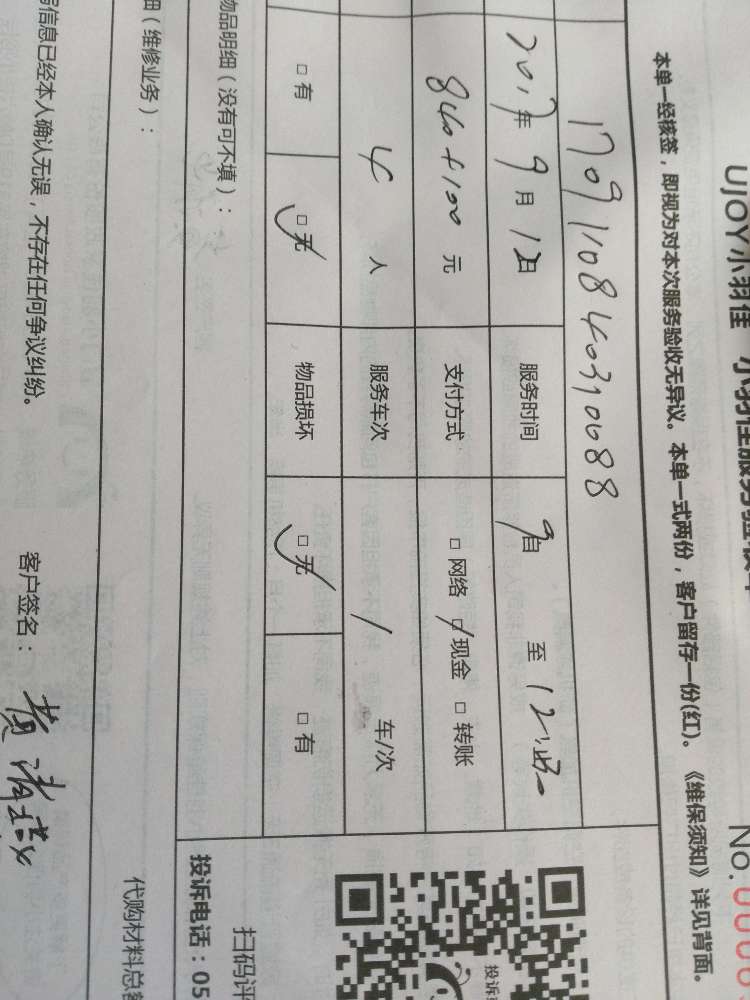 UJOY小羽佳 小羽佳服务验收单
No.0000
本单一经核签，即视为对本次服务验收无异议。本单一式两份，客户留存一份(红)。《维保须知》详见背面。
1709110840310688
2017年9月12日 服务时间 9自 至12:
840+100元 支付方式 □网络 ☑现金 □转账
4人 服务车次 / 车/次
□有 ☑无 物品损坏 ☑无 □有
物品明细（没有可不填）：
投诉电话：05
扫码评
细（维修业务）：
代购材料总
信息已经本人确认无误，不存在任何争议纠纷。 客户签名：